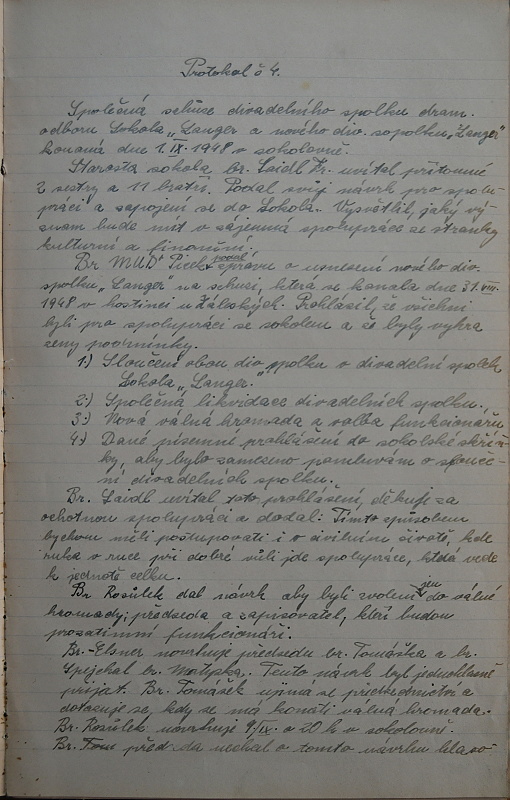 Protokol č 4.
Společná schůze divadelního spolku dram.
odboru Sokola „Langer a nového div. sspolku „Langer"
konaná dne 1.IX.1948 v sokolovně.
Starosta sokola br. Laidl Fr. uvítal přítomné
2 sestry a 11 bratrů. Podal svůj návrh pro spolu-
práci a zapojení se do Sokola. Vysvětlil, jaký vý-
znam bude mít vzájemná spolupráce se stránky
kulturní a finanční.
Br MUDr Picek podal zprávu o usnesení nového div.
spolku „Langer" na schusi, která se konala dne 31.VIII.
1948 v hostinci u Zálských. Prohlásil, že všichni
byli pro spolupráci se sokolem a že byly vyhra
zeny podmínky.
1.) Sloučení obou div spolku v divadelní spolek
Sokola „Langer."
2.) Společná likvidace divadelních spolku.
3.) Nová valná hromada a volba funkcionářů
4.) Dané písemné prohlášení do sokolské skříň-
ky, aby bylo zamezeno pomluvám o slouče-
ní divadelních spolku.
Br. Laidl uvítal toto prohlášení, děkuje za
ochotnou spolupráci a dodal: Tímto způsobem
bychom měli postupovati i v civilním životě, kde
ruka v ruce při dobré vůli jde spolupráce, která vede
k jednotě celku.
Br Rosůlek dal návrh aby byli zvoleni jen do valné
hromady: předseda a zapisovatel, kteří budou
prozatimní funkcionáři.
Br. Elsner navrhuje předsedu br. Tomáška a br.
Spejchal br. Matyska. Tento návrh byl jednohlasně
přijat. Br. Tomášek ujímá se předsednictva a
dotazuje se, kdy se má konati valná hromada.
Br. Rosůlek navrhuje 9/IX. o 20 h v sokolovně.
Br. Tom před-da nechal o tomto návrhu hlaso-